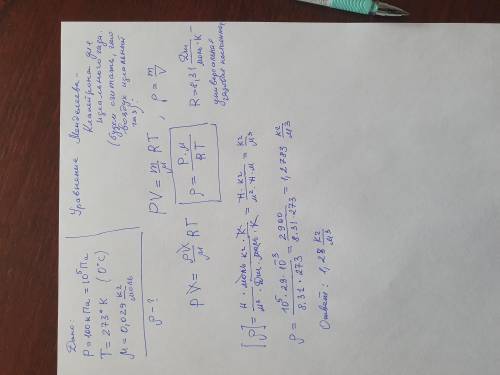 Дано:
P = 100 кПа = 10⁵ Па
T = 273° К (0°С)
μ = 0,029 кг/моль
ρ - ?
Уравнение Менделеева-
Клапейрона для
идеального газа
(будем считать, что
воздух идеальный
газ)
PV = m/μ RT , ρ = m/V
PV = ρV/μ RT
ρ = P·μ/RT
R = 8,31 Дж/моль·К -
универсальная
газовая постоянная,
[ρ] = Н · моль кг · К / м² · Дж · моль · К = Н · кг / м² · Н · м = кг/м³
ρ = 10⁵ · 29 · 10⁻³ / 8.31 · 273 = 2900 / 8.31 · 273 = 1,2783 кг/м³
Ответ: 1,28 кг/м³